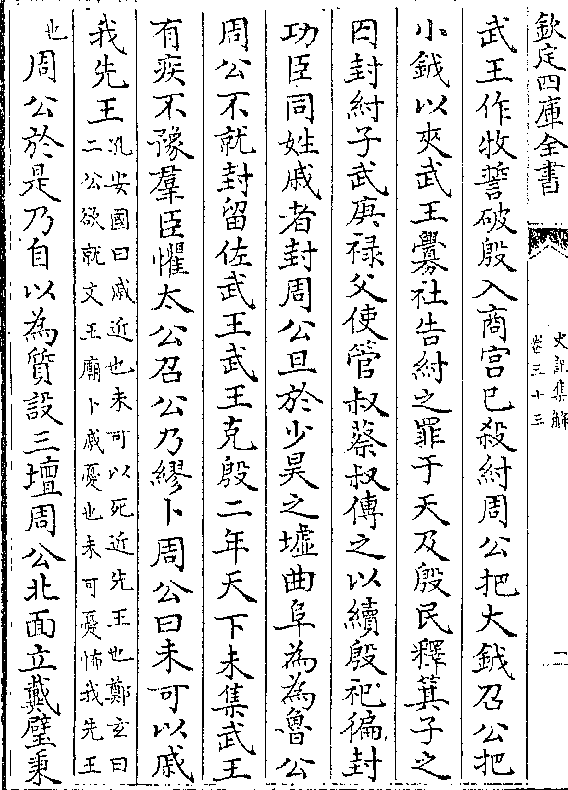 欽定四庫全書
史記集解
卷三十三
一
武王作牧誓破殷入商宮已殺紂周公把大鉞召公把
小鉞以夾武王釁社告紂之罪于天及殷民釋箕子之
囚封紂子武庚禄父使管叔蔡叔傅之以續殷祀徧封
功臣同姓戚者封周公旦於少昊之墟曲阜為為魯公
周公不就封留佐武王武王克殷二年天下未集武王
有疾不豫羣臣懼太公召公乃繆卜周公曰未可以戚
我先王
孔安國曰戚近也未可以死近先王也鄭玄曰
二公欲就文王廟卜戚憂也未可憂怖我先王
也
周公於是乃自以為質設三壇周公北面立戴璧秉